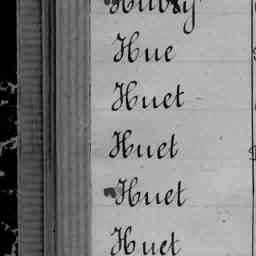 Hue
Huet
Huet
Huet
Huet